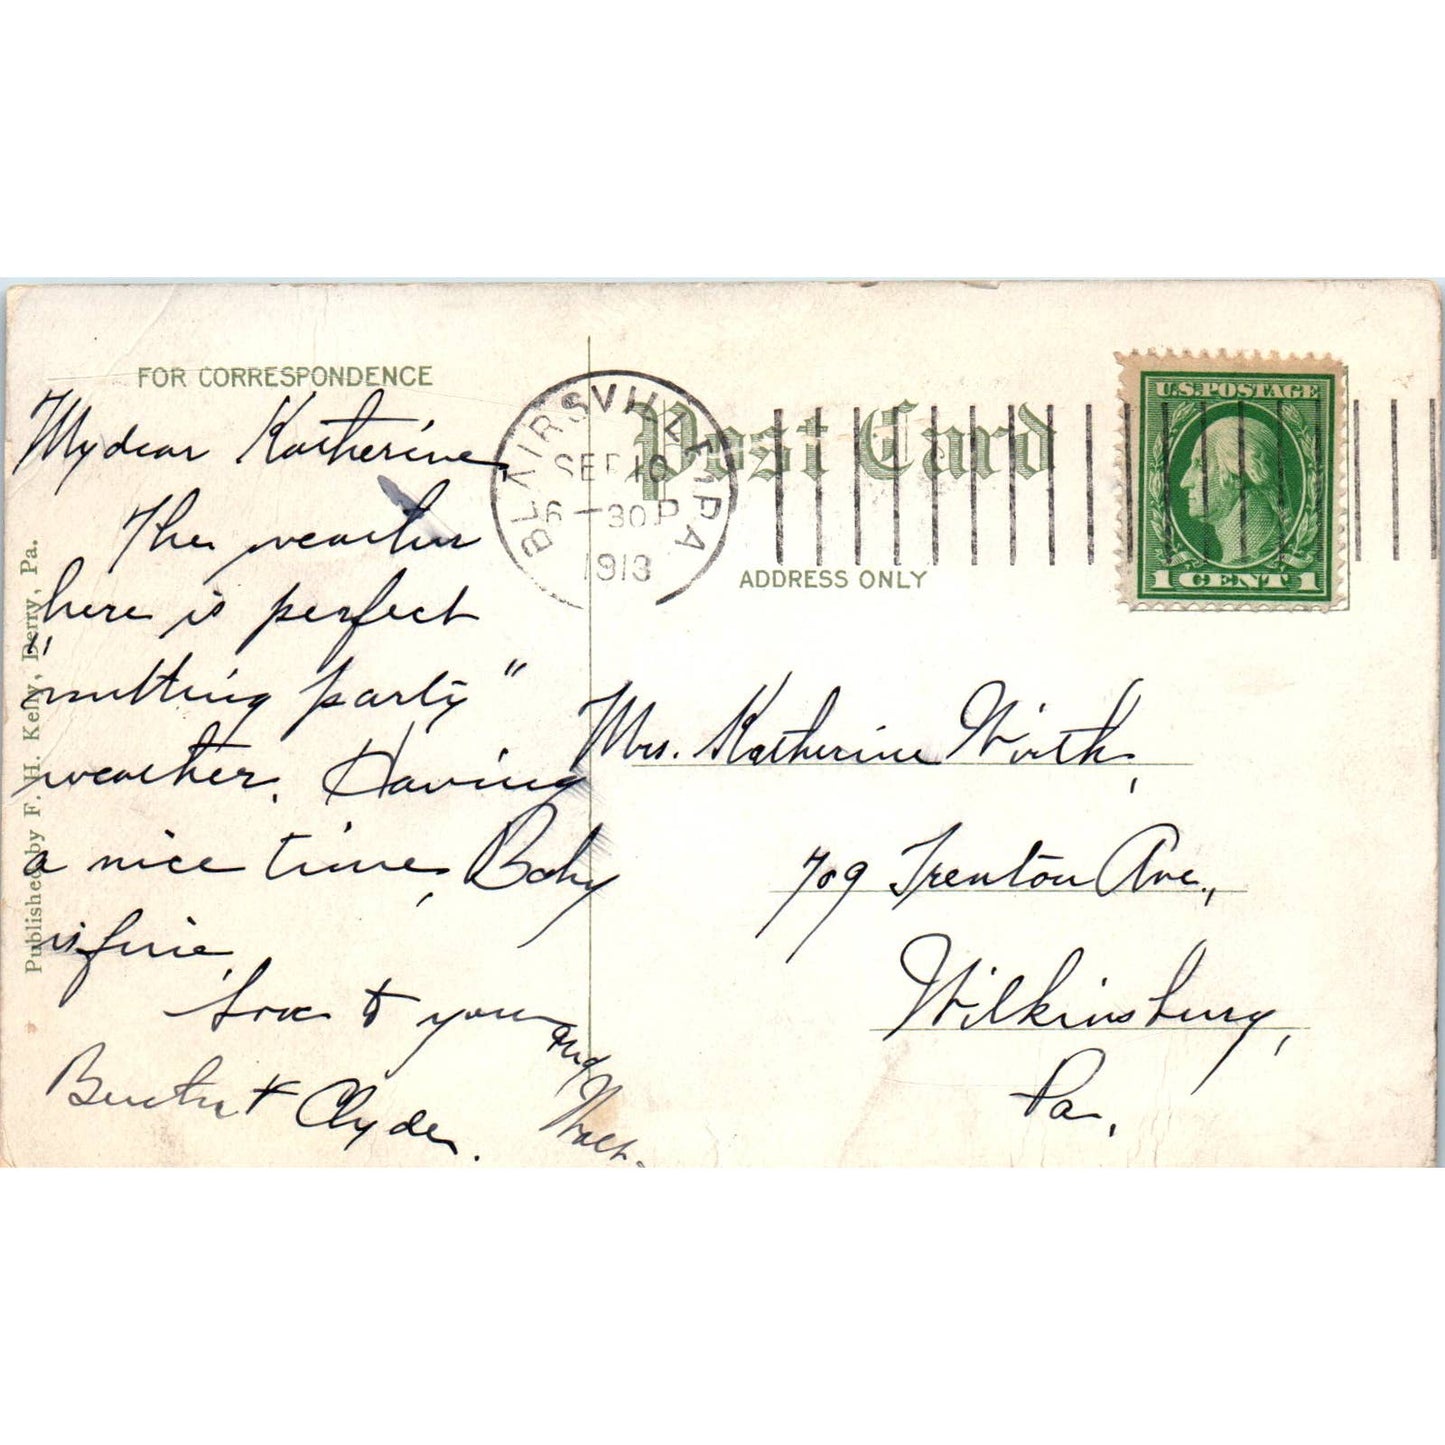 FOR CORRESPONDENCE
My dear Katherine,
The weather
here is perfect
"nutting party"
weather. Having
a nice time, Baby
is fine.
Love to you and Walt.
& Clyde.
Published by F. H. Kelly, Derry, Pa.
BLAIRSVILLE, PA
SEP
6-30 P
1913
Post Card
ADDRESS ONLY
U.S. POSTAGE
1 CENT 1
Mrs. Katherine Wirth,
709 Trenton Ave.,
Wilkinsburg,
Pa.